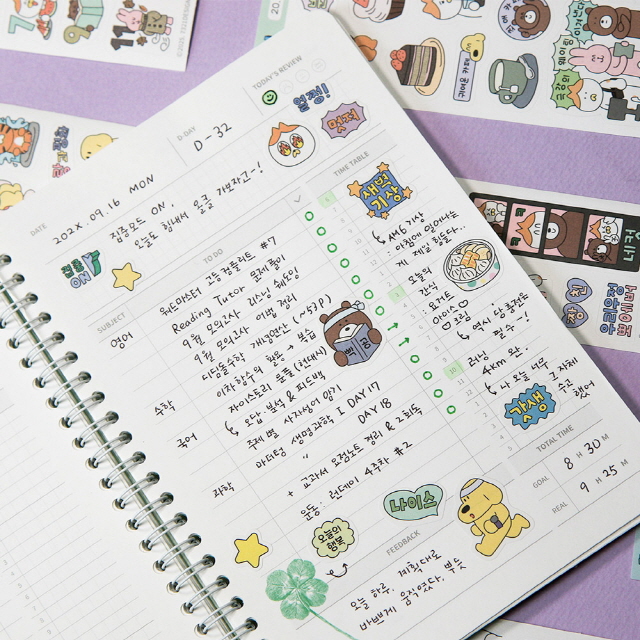 TODAY'S REVIEW
D-DAY
D-32
열정!
멋져
DATE
202X. 09. 16 MON
집중모드 ON,
오늘도 힘내서 열공 가보자고~!
집중
ON
TIME TABLE
새벽
기상
AM6 기상
: 아침에 일어나는
게 제일 힘들다..
오늘의
간식
요거트
아이스
크림
↳ 역시 당 충전은
필수~!
러닝
4km 완.
↳ 나 오늘 너무
갓생
그 자체
였어
SUBJECT
TO DO
영어
워드마스터 고등 컴플리트 #7
Reading Tutor 문제풀이
9월 모의고사 리스닝 쉐도잉
9월 모의고사 어법 정리
수학
디딤돌수학 개념연산 (~53P)
이차함수의 활용 → 복습
국어
자이스토리 문풀 (현대시)
↳ 오답 분석 & 피드백
주제별 사자성어 암기
과학
마더텅 생명과학 I DAY 17
" DAY 18
+ 교과서 요점노트 정리 & 2회독
운동: 런데이 4주차 #2
열공
TOTAL TIME
GOAL
8 H 30 M
REAL
9 H 25 M
나이스
오늘의
행복
FEEDBACK
오늘 하루, 계획대로
바쁘게 움직였다. 뿌듯
귀여운 카페
네컷